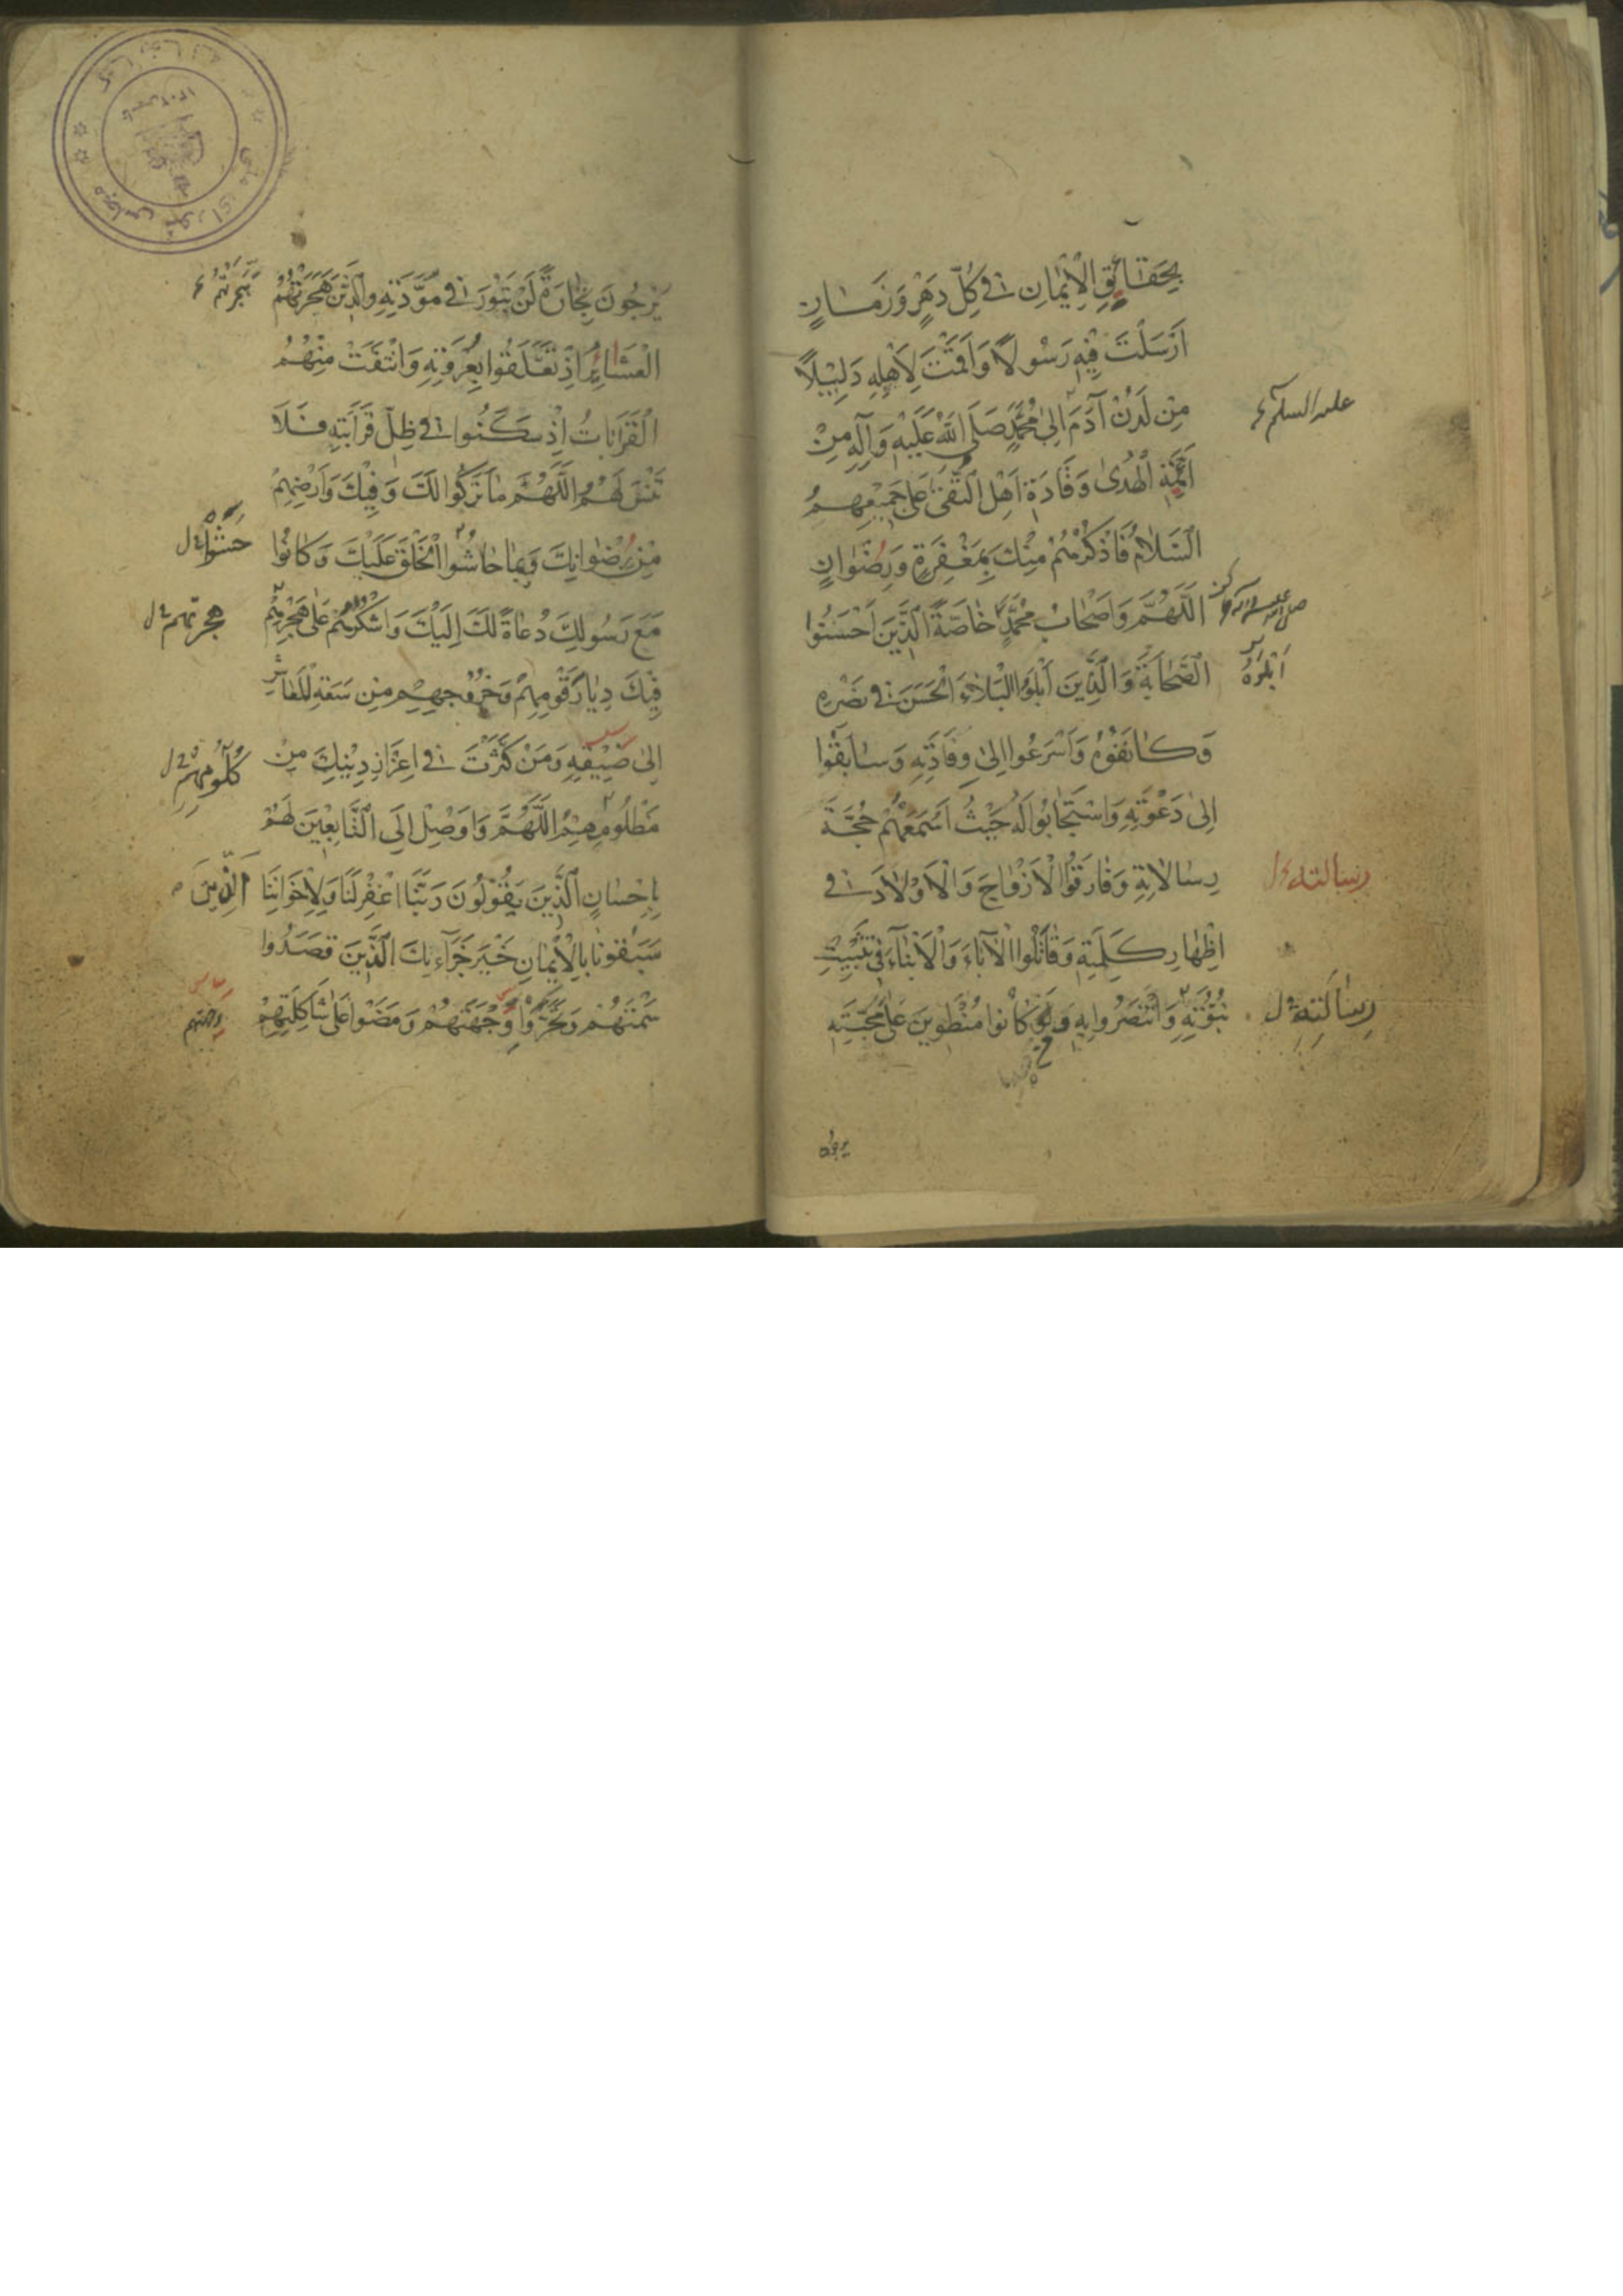 بِحَقَائِقِ الْاِيْمَانِ فِي كُلِّ دَهْرٍ وَزَمَانٍ
اَرْسَلْتَ فِيْهِ رَسُولًا وَاَقَمْتَ لِاَهْلِهِ دَلِيْلًا
مِنْ لَدُنْ آدَمَ اِلىٰ مُحَمَّدٍ صَلَّى اللّٰهُ عَلَيْهِ وَآلِهِ مِنْ
عليه السلام
اَئِمَّةِ الْهُدىٰ وَقَادَةِ اَهْلِ التُّقىٰ عَلىٰ جَمِيْعِهِمُ
السَّلَامُ فَاذْكُرْهُمْ مِنْكَ بِمَغْفِرَةٍ وَرِضْوَانٍ
اَللّٰهُمَّ وَاَصْحَابُ مُحَمَّدٍ خَاصَّةً الَّذِيْنَ اَحْسَنُوا
الصَّحَابَةَ وَالَّذِيْنَ اَبْلَوُا الْبَلَاءَ الْحَسَنَ فِي نَصْرِهِ
وَكَانَفُوْهُ وَاَسْرَعُوا اِلىٰ وِفَادَتِهِ وَسَابَقُوْا
اِلىٰ دَعْوَتِهِ وَاسْتَجَابُوا لَهُ حَيْثُ اَسْمَعَهُمْ حُجَّةَ
رِسَالَاتِهِ وَفَارَقُوا الْاَزْوَاجَ وَالْاَوْلَادَ فِي
رسالته ل
اِظْهَارِ كَلِمَتِهِ وَقَاتَلُوا الْآبَاءَ وَالْاَبْنَاءَ فِي تَثْبِيْتِ
نُبُوَّتِهِ وَانْتَصَرُوا بِهِ وَمَنْ كَانُوا مُنْطَوِيْنَ عَلىٰ مَحَبَّتِهِ
رِسَالَتِهِ ل
يرجون
يَرْجُونَ تِجَارَةً لَنْ تَبُوْرَ فِي مَوَدَّتِهِ وَالَّذِيْنَ هَجَرَتْهُمُ
الْعَشَائِرُ اِذْ تَعَلَّقُوا بِعُرْوَتِهِ وَانْتَفَتْ مِنْهُمُ
الْقَرَابَاتُ اِذْ سَكَنُوا فِي ظِلِّ قَرَابَتِهِ فَلَا
تَنْسَ لَهُمُ اللّٰهُمَّ مَا تَرَكُوا لَكَ وَفِيْكَ وَاَرْضِهِمْ
مِنْ رِضْوَانِكَ وَبِمَا حَاشُوا الْخَلْقَ عَلَيْكَ وَكَانُوا
حَشَوْا ل
مَعَ رَسُولِكَ دُعَاةً لَكَ اِلَيْكَ وَاشْكُرْهُمْ عَلىٰ هَجْرِهِمْ
هجرتهم ل
فِيْكَ دِيَارَ قَوْمِهِمْ وَخُرُوْجِهِمْ مِنْ سَعَةِ الْمَعَاشِ
اِلىٰ ضِيْقِهِ وَمَنْ كَثَّرْتَ فِي اِعْزَازِ دِيْنِكَ مِنْ
مَظْلُومِهِمْ اَللّٰهُمَّ وَاَوْصِلْ اِلَى التَّابِعِيْنَ لَهُمْ
بِاِحْسَانٍ الَّذِيْنَ يَقُوْلُوْنَ رَبَّنَا اغْفِرْ لَنَا وَلِاِخْوَانِنَا
اَلَّذِيْنَ
سَبَقُونَا بِالْاِيْمَانِ خَيْرَ جَزَآءِكَ الَّذِيْنَ قَصَدُوا
سَمْتَهُمْ وَتَحَرَّوْا وِجْهَتَهُمْ وَمَضَوْا عَلىٰ شَاكِلَتِهِمْ